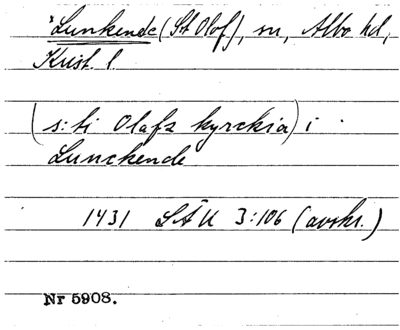 *Lunkende (St Olof), sn, Albo hd,
Krist. l.
(s:ti Olafz kyrckia) i
Lunckende
1431 SÅU 3:106 (avskr.)
Nr 5908.